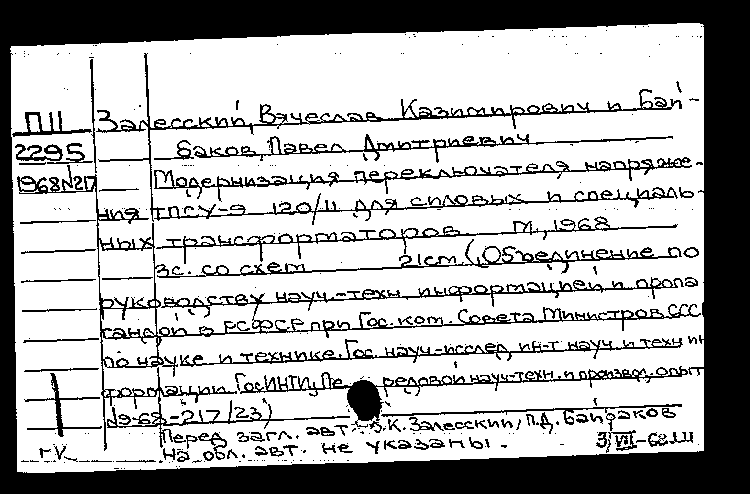 П11 Залесский, Вячеслав Казимирович и Бай-
2295 баков, Павел Дмитриевич
1968№217 Модернизация переключателя напряже-
ния ТПСУ-9 120/11 для силовых и специаль-
ных трансформаторов М., 1968
3с. со схем 21см. (Объединение по
руководству науч.-техн. информацией и пропа-
гандой в РСФСР при Гос. ком. Совета Министров СССР
по науке и технике. Гос. науч-исслед. ин-т науч и техн ин
формации ГосИНТИ, Передовой науч-техн. и произвд. опыт
№9-68-217/23)
Перед загл. авт.: В.К. Залесский, П.Д. Байбаков
На обл. авт. не указаны.